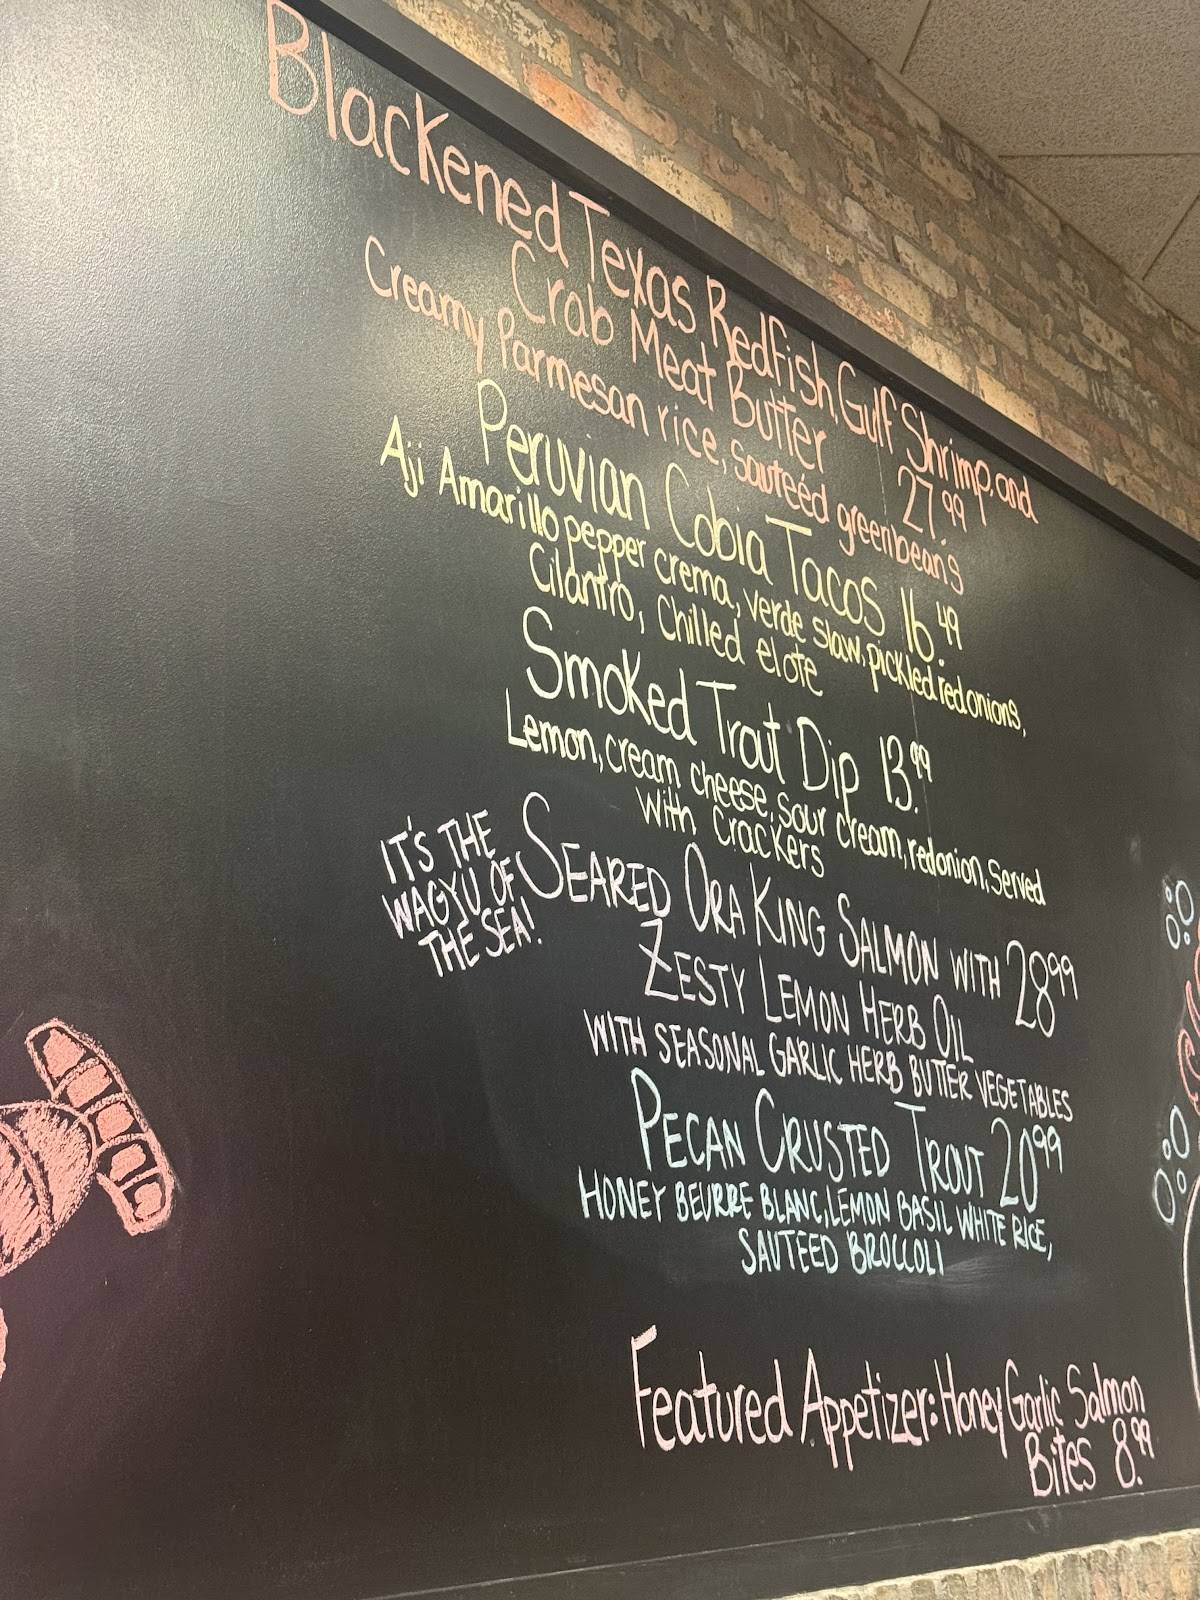 Blackened Texas Redfish, Gulf Shrimp, and
Crab Meat Butter 27.99
Creamy Parmesan rice, sautéed green beans
Peruvian Cobia Tacos 16.49
Aji Amarillo pepper crema, verde slaw, pickled red onions,
Cilantro, Chilled elote
Smoked Trout Dip 13.99
Lemon, cream cheese, sour cream, red onion, Served
with Crackers
IT'S THE
WAGYU OF
THE SEA!
SEARED ORA KING SALMON WITH 28.99
ZESTY LEMON HERB OIL
WITH SEASONAL GARLIC HERB BUTTER VEGETABLES
PECAN CRUSTED TROUT 20.99
HONEY BEURRE BLANC, LEMON BASIL WHITE RICE,
SAUTEED BROCCOLI
Featured Appetizer: Honey Garlic Salmon
Bites 8.99